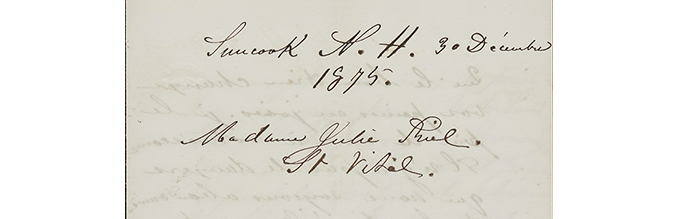 Suncook N. H. 30 Décembre
1875.
Madame Julie Riel.
St Vital.